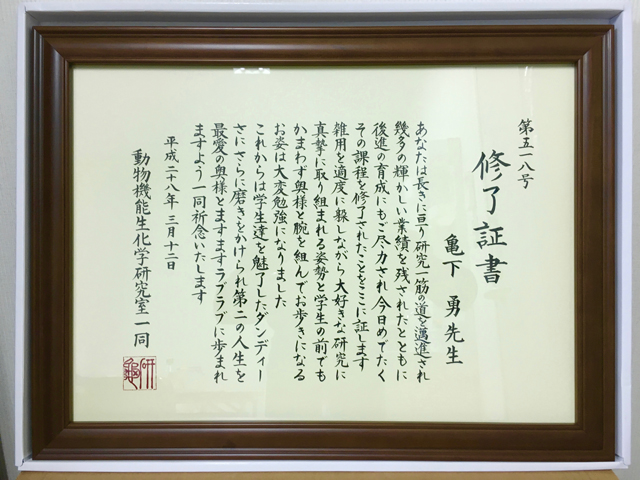 第五一八号
修了証書
亀下 勇 先生
あなたは長きに亘り研究一筋の道を邁進され
幾多の輝かしい業績を残されたとともに
後進の育成にもご尽力され今日めでたく
その課程を修了されたことをここに証します
雑用を適度に殺しながら大好きな研究に
真摯に取り組まれる姿勢と学生の前でも
かまわず奥様と腕を組んでお歩きになる
お姿は大変勉強になりました
これからは学生達を魅了したダンディー
さにさらに磨きをかけられ第二の人生を
最愛の奥様とますますラブラブに歩まれ
ますよう一同祈念いたします
平成二十八年 三月十二日
動物機能生化学研究室一同
研亀